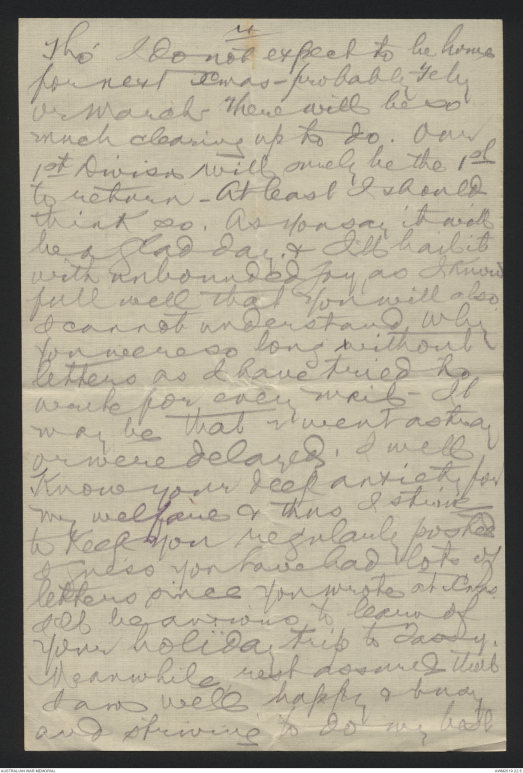 4
Tho' I do not expect to be home
for next Xmas - probably Feby
or March - There will be so
much clearing up to do. Our
1st Divisn will surely be the 1st
to return - At least I should
think so. As you say it will
be a glad day & I'll hail it
with unbounded joy as I know
full well that you will also
I cannot understand why
you were so long without
letters as I have tried to
write for every mail - It
may be that they went astray
or were delayed. I well
know your deep anxiety for
my welfare & thus I strive
to keep you regularly posted
I guess you have had lots of
letters since you wrote at Xmas.
I'll be anxious to learn of
your holiday trip to Tassy.
Meanwhile rest assured that
I am well happy & busy
and striving to do my best
AUSTRALIAN WAR MEMORIAL
AWM2019.22.5